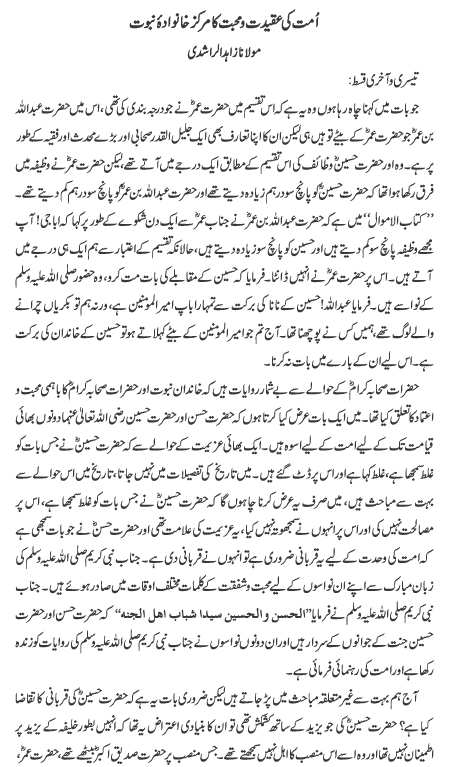 اُمت کی عقیدت و محبت کا مرکز خانوادۂ نبوت
مولانا زاہد الراشدی
تیسری و آخری قسط:
جو بات میں کہنا چاہ رہا ہوں وہ یہ ہے کہ اس تقسیم میں حضرت عمرؓ نے جو درجہ بندی کی تھی، اس میں حضرت عبداللہ
بن عمرؓ جو حضرت عمرؓ کے بیٹے تو ہیں ہی لیکن ان کا اپنا تعارف بھی ایک جلیل القدر صحابی اور بڑے محدث اور فقیہ کے طور
پر ہے۔ وہ اور حضرت حسینؓ وظائف کی اس تقسیم کے مطابق ایک درجے میں آتے ہیں، لیکن حضرت عمرؓ نے وظیفہ میں
فرق رکھا ہوا تھا کہ حضرت حسینؓ کو پانچ سو درہم زیادہ دیتے تھے اور حضرت عبداللہ بن عمرؓ کو پانچ سو درہم کم دیتے تھے۔
”کتاب الاموال“ میں ہے کہ حضرت عبداللہ بن عمرؓ نے جناب عمرؓ سے ایک دن شکوے کے طور پر کہا کہ ابا جی! آپ
مجھے وظیفہ پانچ سو کم دیتے ہیں اور حسین کو پانچ سو زیادہ دیتے ہیں، حالانکہ تقسیم کے اعتبار سے ہم ایک ہی درجے میں
آتے ہیں۔ اس پر حضرت عمرؓ نے انہیں ڈانٹا۔ فرمایا کہ حسین کے مقابلے کی بات مت کرو، وہ حضور صلی اللہ علیہ وسلم
کے نواسے ہیں۔ فرمایا عبداللہ! حسین کے نانا کی برکت سے تمہارا باپ امیر المومنین ہے، ورنہ ہم تو بکریاں چرانے
والے لوگ تھے، ہمیں کس نے پوچھنا تھا۔ آج تم جو امیر المومنین کے بیٹے کہلاتے ہو تو حسین کے خاندان کی برکت
ہے۔ اس لیے ان کے بارے میں بات نہ کرنا۔
حضرات صحابہ کرامؓ کے حوالے سے بے شمار روایات ہیں کہ خاندان نبوت اور حضرات صحابہ کرامؓ کا باہمی محبت و
اعتماد کا تعلق کیا تھا۔ میں ایک بات عرض کیا کرتا ہوں کہ حضرت حسن اور حضرت حسین رضی اللہ تعالیٰ عنہما دونوں بھائی
قیامت تک کے لیے امت کے لیے اسوہ ہیں۔ ایک بھائی عزیمت کے حوالے سے کہ حضرت حسینؓ نے جس بات کو
غلط سمجھا ہے، غلط کہا ہے اور اس پر ڈٹ گئے ہیں۔ میں تاریخ کی تفصیلات میں نہیں جاتا، تاریخ میں اس حوالے سے
بہت سے مباحث ہیں، میں صرف یہ عرض کرنا چاہوں گا کہ حضرت حسینؓ نے جس بات کو غلط سمجھا ہے، اس پر
مصالحت نہیں کی اور اس پر انہوں نے سمجھوتہ نہیں کیا، یہ عزیمت کی علامت تھی اور حضرت حسنؓ نے جو بات سمجھی ہے
کہ امت کی وحدت کے لیے یہ قربانی ضروری ہے تو انہوں نے قربانی دی ہے۔ جناب نبی کریم صلی اللہ علیہ وسلم کی
زبان مبارک سے اپنے ان نواسوں کے لیے محبت و شفقت کے کلمات مختلف اوقات میں صادر ہوئے ہیں۔ جناب
نبی کریم صلی اللہ علیہ وسلم نے فرمایا ”الحسن و الحسین سیدا شباب اهل الجنه“ کہ حضرت حسن اور حضرت
حسین جنت کے جوانوں کے سردار ہیں اور ان دونوں نواسوں نے جناب نبی کریم صلی اللہ علیہ وسلم کی روایات کو زندہ
رکھا ہے اور امت کی رہنمائی فرمائی ہے۔
آج ہم بہت سے غیر متعلقہ مباحث میں پڑ جاتے ہیں لیکن ضروری بات یہ ہے کہ حضرت حسینؓ کی قربانی کا تقاضا
کیا ہے؟ حضرت حسینؓ کی جو یزید کے ساتھ کشمکش تھی تو ان کا بنیادی اعتراض یہ تھا کہ انہیں بطور خلیفہ کے یزید پر
اطمینان نہیں تھا اور وہ اسے اس منصب کا اہل نہیں سمجھتے تھے۔ جس منصب پر حضرت صدیق اکبرؓ بیٹھے تھے، حضرت عمرؓ،